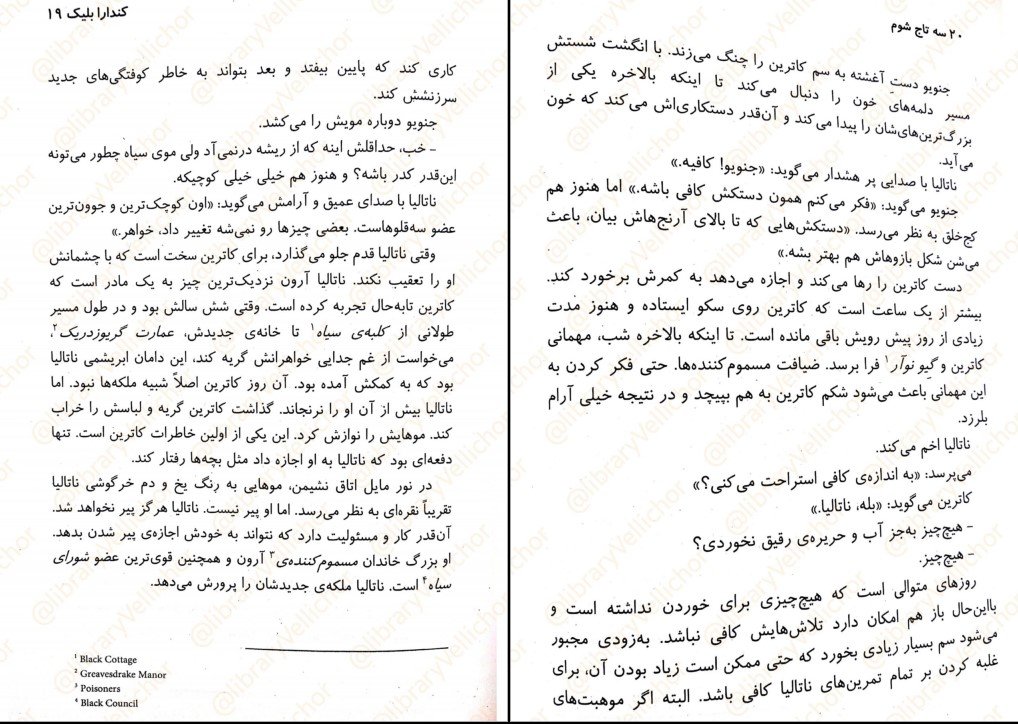 کندارا بلیک ۱۹
کاری کند که پایین بیفتد و بعد بتواند به خاطر کوفتگی‌های جدید
سرزنشش کند.
جنویو دوباره مویش را می‌کشد.
- خب، حداقلش اینه که از ریشه درنمی‌آد ولی موی سیاه چطور می‌تونه
این‌قدر کدر باشه؟ و هنوز هم خیلی خیلی کوچیکه.
ناتالیا با صدای عمیق و آرامش می‌گوید: «اون کوچک‌ترین و جوون‌ترین
عضو سه‌قلوهاست. بعضی چیزها رو نمی‌شه تغییر داد، خواهر.»
وقتی ناتالیا قدم جلو می‌گذارد، برای کاترین سخت است که با چشمانش
او را تعقیب نکند. ناتالیا آرون نزدیک‌ترین چیز به یک مادر است که
کاترین تابه‌حال تجربه کرده است. وقتی شش سالش بود و در طول مسیر
طولانی از کلبه‌ی سیاه¹ تا خانه‌ی جدیدش، عمارت گریوزدریک²،
می‌خواست از غم جدایی خواهرانش گریه کند، این دامان ابریشمی ناتالیا
بود که به کمکش آمده بود. آن روز کاترین اصلاً شبیه ملکه‌ها نبود. اما
ناتالیا بیش از آن او را نرنجاند. گذاشت کاترین گریه و لباسش را خراب
کند. موهایش را نوازش کرد. این یکی از اولین خاطرات کاترین است. تنها
دفعه‌ای بود که ناتالیا به او اجازه داد مثل بچه‌ها رفتار کند.
در نور مایل اتاق نشیمن، موهایی به رنگ یخ و دم خرگوشی ناتالیا
تقریباً نقره‌ای به نظر می‌رسد. اما او پیر نیست. ناتالیا هرگز پیر نخواهد شد.
آن‌قدر کار و مسئولیت دارد که نتواند به خودش اجازه‌ی پیر شدن بدهد.
او بزرگ خاندان مسموم‌کننده‌ی³ آرون و همچنین قوی‌ترین عضو شورای
سیاه⁴ است. ناتالیا ملکه‌ی جدیدشان را پرورش می‌دهد.
¹ Black Cottage
² Greavesdrake Manor
³ Poisoners
⁴ Black Council
۲۰ سه تاج شوم
جنویو دستِ آغشته به سم کاترین را چنگ می‌زند. با انگشت شستش
مسیر دلمه‌های خون را دنبال می‌کند تا اینکه بالاخره یکی از
بزرگ‌ترین‌های‌شان را پیدا می‌کند و آن‌قدر دستکاری‌اش می‌کند که خون
می‌آید.
ناتالیا با صدایی پر هشدار می‌گوید: «جنویو! کافیه.»
جنویو می‌گوید: «فکر می‌کنم همون دستکش کافی باشه.» اما هنوز هم
کج‌خلق به نظر می‌رسد. «دستکش‌هایی که تا بالای آرنج‌هاش بیان، باعث
می‌شن شکل بازوهاش هم بهتر بشه.»
دست کاترین را رها می‌کند و اجازه می‌دهد به کمرش برخورد کند.
بیشتر از یک ساعت است که کاترین روی سکو ایستاده و هنوز مدت
زیادی از روز پیش رویش باقی مانده است. تا اینکه بالاخره شب، مهمانی
کاترین و گیو نوآر¹ فرا برسد. ضیافت مسموم‌کننده‌ها. حتی فکر کردن به
این مهمانی باعث می‌شود شکم کاترین به هم بپیچد و در نتیجه خیلی آرام
بلرزد.
ناتالیا اخم می‌کند.
می‌پرسد: «به اندازه‌ی کافی استراحت می‌کنی؟»
کاترین می‌گوید: «بله، ناتالیا.»
- هیچ‌چیز به‌جز آب و حریره‌ی رقیق نخوردی؟
- هیچ‌چیز.
روزهای متوالی است که هیچ‌چیزی برای خوردن نداشته است و
بااین‌حال باز هم امکان دارد تلاش‌هایش کافی نباشد. به‌زودی مجبور
می‌شود سم بسیار زیادی بخورد که حتی ممکن است زیاد بودن آن، برای
غلبه کردن بر تمام تمرین‌های ناتالیا کافی باشد. البته اگر موهبت‌های
@libraryVellichor